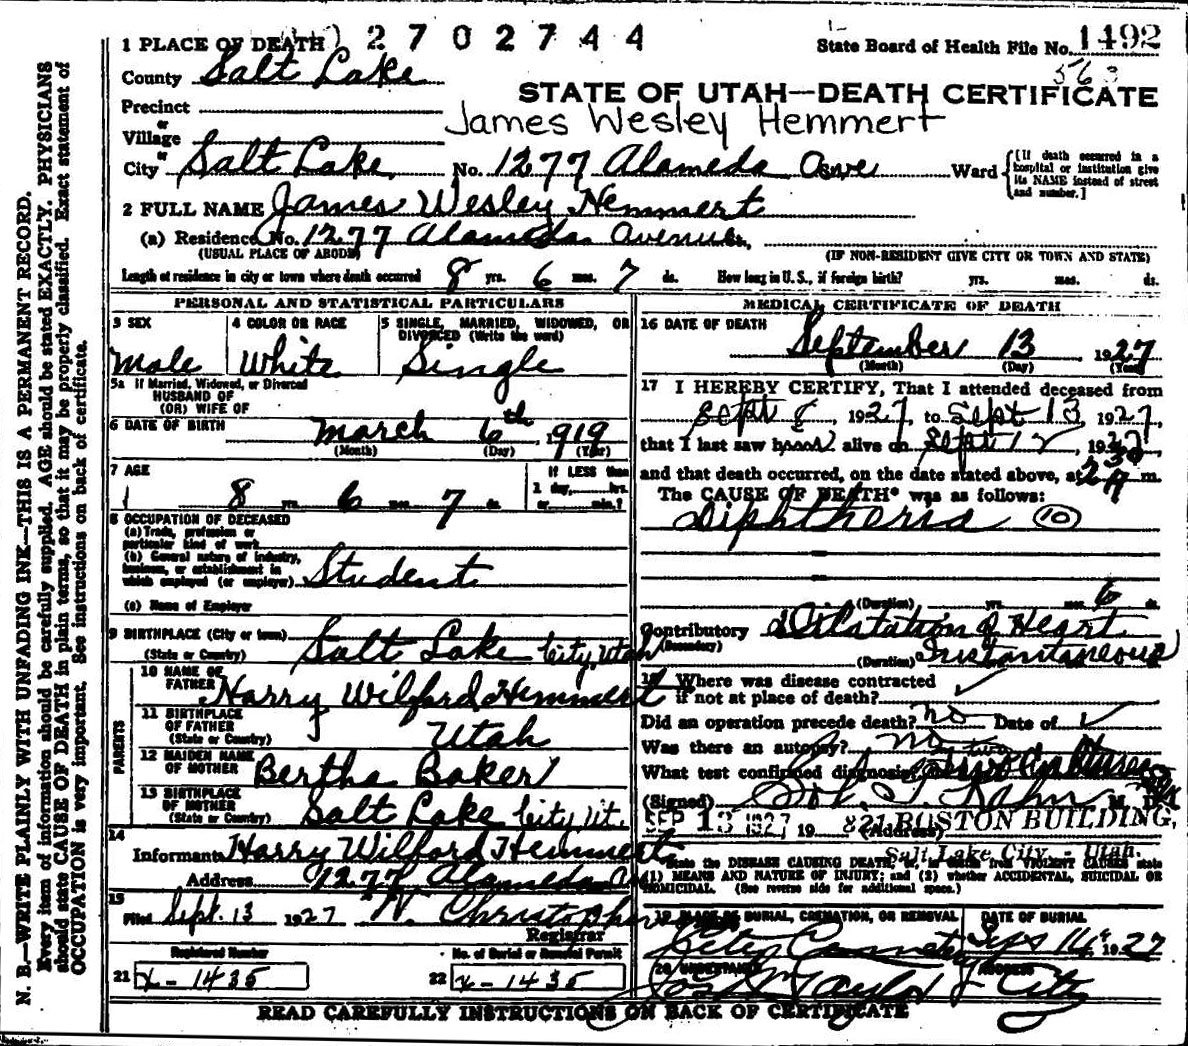 2702744
State Board of Health File No. 1492
563
1 PLACE OF DEATH
County Salt Lake
STATE OF UTAH—DEATH CERTIFICATE
Precinct
James Wesley Hemmert
or
Village
or
City Salt Lake No. 1277 Alameda Ave Ward
[If death occurred in a hospital or institution give its NAME instead of street and number.]
2 FULL NAME James Wesley Hemmert
(a) Residence No. 1277 Alameda Avenue St.,
(USUAL PLACE OF ABODE) (IF NON-RESIDENT GIVE CITY OR TOWN AND STATE)
Length of residence in city or town where death occurred 8 yrs. 6 mos. 7 ds. How long in U. S., if foreign birth? yrs. mos. ds.
PERSONAL AND STATISTICAL PARTICULARS
3 SEX
Male
4 COLOR OR RACE
White
5 SINGLE, MARRIED, WIDOWED, OR
DIVORCED (Write the word)
Single
5a If Married, Widowed, or Divorced
HUSBAND OF
(OR) WIFE OF
6 DATE OF BIRTH March 6th, 1919
(Month) (Day) (Year)
7 AGE
8 yrs. 6 mos. 7 ds.
If LESS than
1 day, hrs.
or min.?
8 OCCUPATION OF DECEASED
(a) Trade, profession or
particular kind of work
(b) General nature of industry,
business, or establishment in
which employed (or employer) Student
(c) Name of Employer
9 BIRTHPLACE (City or town)
(State or Country) Salt Lake City, Utah
PARENTS
10 NAME OF
FATHER Harry Wilford Hemmert
11 BIRTHPLACE
OF FATHER
(State or Country) Utah
12 MAIDEN NAME
OF MOTHER Bertha Baker
13 BIRTHPLACE
OF MOTHER
(State or Country) Salt Lake City, Ut.
14
Informant Harry Wilford Hemmert
Address 1277 Alameda Av
15
Filed Sept. 13 1927 Christopher
Registrar
Registered Number
21 x-1435
No. of Burial or Removal Permit
22 x-1435
MEDICAL CERTIFICATE OF DEATH
16 DATE OF DEATH
September 13, 1927
(Month) (Day) (Year)
17 I HEREBY CERTIFY, That I attended deceased from
Sept 8, 1927, to Sept 13 1927,
that I last saw h alive on Sept 12, 1927,
and that death occurred, on the date stated above, at 230 A m.
The CAUSE OF DEATH* was as follows:
Diphtheria (10)
(Duration) yrs. mos. 6 ds.
Contributory Dilatation of Heart
(Secondary)
(Duration) Instantaneous
18 Where was disease contracted
if not at place of death?
Did an operation precede death? no Date of
Was there an autopsy? no
What test confirmed diagnosis? two cultures
(Signed) Kahn M. D.
SEP 13 1927 19 (Address) 821 BOSTON BUILDING,
Salt Lake City, - Utah.
*State the DISEASE CAUSING DEATH, or, in deaths from VIOLENT CAUSES state
(1) MEANS AND NATURE OF INJURY; and (2) whether ACCIDENTAL, SUICIDAL OR
HOMICIDAL. (See reverse side for additional space.)
19 PLACE OF BURIAL, CREMATION, OR REMOVAL
City Cemetery
DATE OF BURIAL
Sept 14" 1927
20 UNDERTAKER
Jos Wm Taylor
ADDRESS
City
READ CAREFULLY INSTRUCTIONS ON BACK OF CERTIFICATE
N. B.—WRITE PLAINLY WITH UNFADING INK—THIS IS A PERMANENT RECORD.
Every item of information should be carefully supplied. AGE should be stated EXACTLY. PHYSICIANS
should state CAUSE OF DEATH in plain terms, so that it may be properly classified. Exact statement of
OCCUPATION is very important. See instructions on back of certificate.